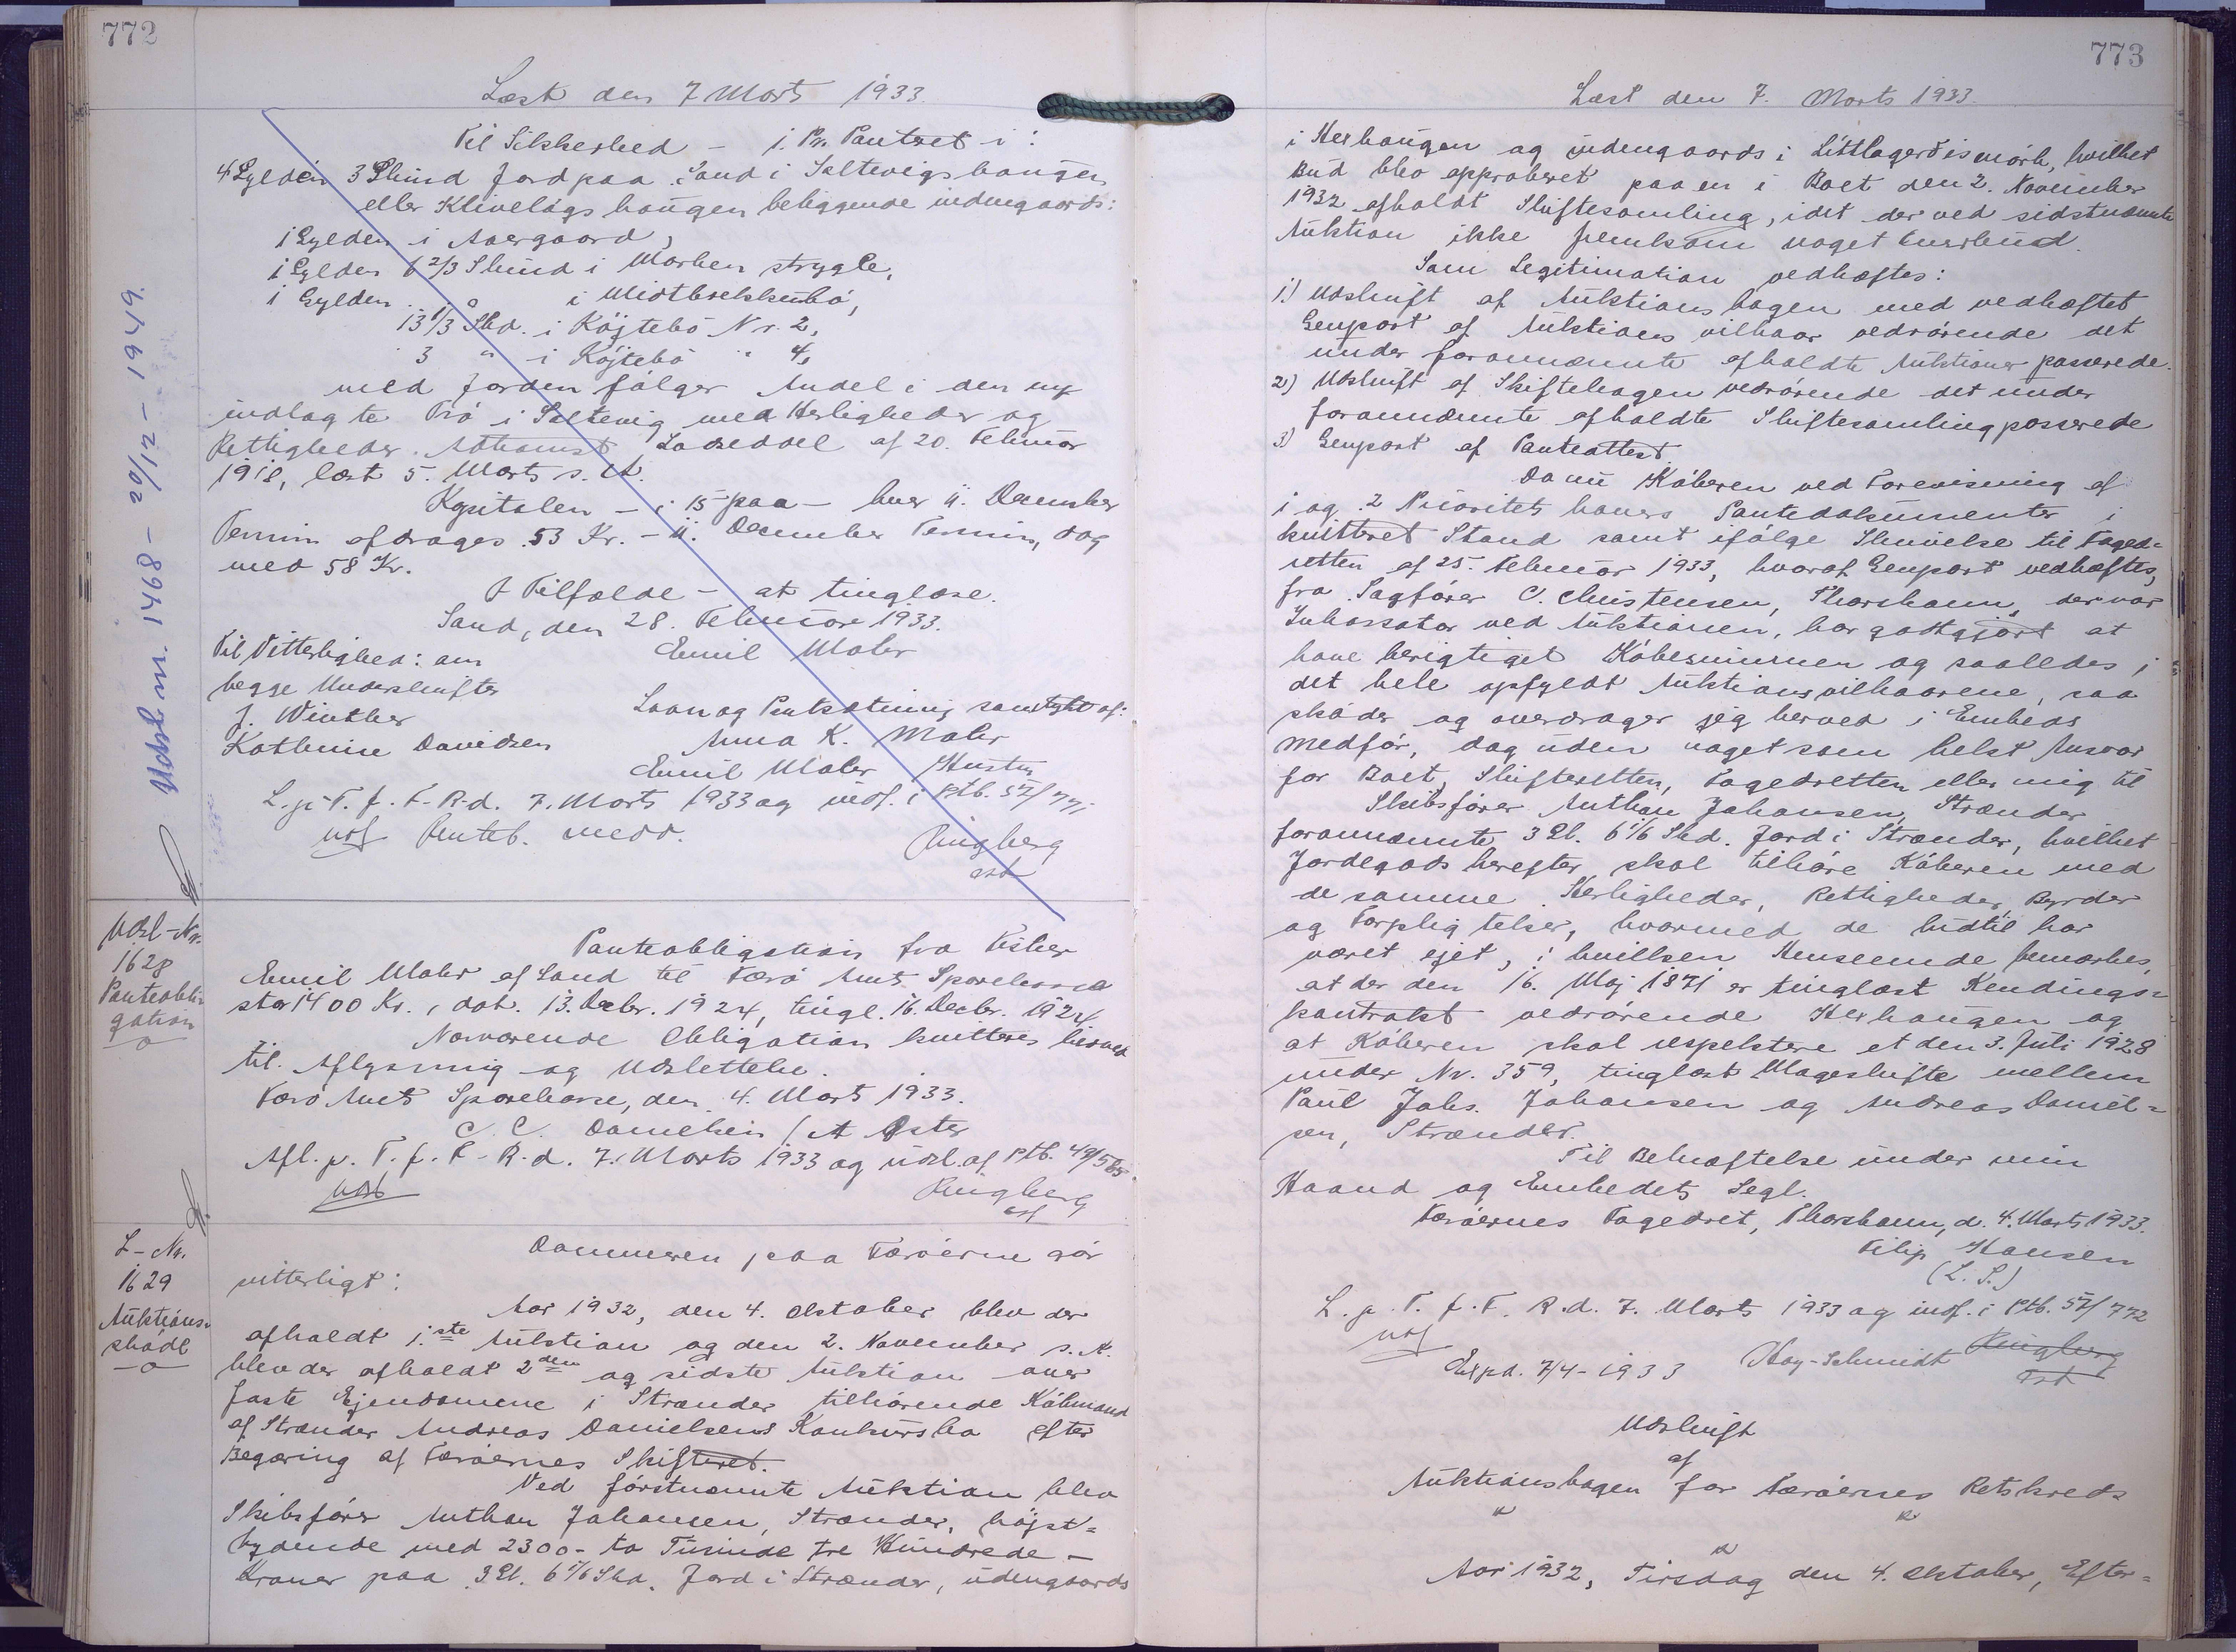 772
Læst den 7 Marts 1933.
Til Sikkerhed – 1. Pr. Panteret i:
4 Gylden 3 Skind Jord paa Sand i Saltevigshaugen
eller Klivelágs haugen beliggende indengaards:
1 Gylden i Aargaard,
1 Gylden 6 2/3 Skind i Marken strygle,
1 Gylden i Midtbrekkubö,
13 1/3 Skd. i Köjtebö Nr. 2,
3 " i Köjtebö " 4,
med Jorden fölger Andel i den ny
indlagte Trö i Saltevig med Herligheder og
Rettigheder. Adkomst Lodseddel af 20. Februar
1918, læst 5. Marts s. A.
Kapitalen – i 15 paa – hver 11. December
Termin afdrages 53 Kr. – 11. December Termin, dog
med 58 Kr.
I Tilfælde – at tinglæse.
Sand, den 28. Februar 1933.
Til Vitterlighed: om
begge Underskrifter
J. Winther
Kathrine Davidsen
Emil Mohr
Laan og Pantsætning samtykt af:
Anna K. Mohr
Emil Mohr Hustru
L. p. T. f. F. R. d. 7. Marts 1933 og indf. i Ptb. 57/771
Panteb. medd.
Ringberg
cst
Udsl. m. 1468 – 20/12 – 1949.
Udsl-Nr.
1628
Panteobli-
gation
Panteobligation fra Fisker
Emil Mohr af Sand til Færö Amts Sparekasse
stor 1400 Kr., dat. 13. Decbr. 1924, tingl. 16. Decbr. 1924
Nærværende Obligation kvitteres herved
til Aflysning og Udslettelse.
Færö Amts Sparekasse, den 4. Mart 1933.
C. C. Danielsen / A Öster
Afl. p. T. f. F. R. d. 7. Marts 1933 og udsl. af Ptb. 49/585
Ringberg
cst
L-Nr.
1629
Auktions-
sköde
Dommeren paa Færöerne gör
vitterligt:
Aar 1932, den 4. Oktober blev der
afholdt 1.ste Auktion og den 2. November s. A.
blev der afholdt 2den og sidste Auktion over
faste Ejendomme i Strænder tilhörende Köbmand
af Strænder Andreas Danielsens Konkursbo efter
Begæring af Færöernes Skifteret.
Ved förstnævnte Auktion blev
Skibsförer Anthon Johansen, Strænder, höjst-
bydende med 2300 – to Tusinde tre Hundrede –
Kroner paa 3 Gl. 6 1/6 Skd. Jord i Strænder, udengaards
773
Læst den 7. Marts 1933.
i Herhaugen og indengaards i Littlagerdismörk, hvilket
Bud blev approberet paa en i Boet den 2. November
1932 afholdt Skiftesamling, idet der ved sidstnævnte
Auktion ikke fremkom noget Overbud.
Som Legitimation vedhæftes:
1) Udskrift af Auktionsbogen med vedhæftet
Genpart af Auktionsvilkaar vedrörende det
under forannævnte afholdte Auktioner passerede.
2) Udskrift af Skiftebogen vedrörende det under
forannævnte afholdte Skiftesamling passerede
3) Genpart af Panteattest.
Da nu Köberen ved Forevisning af
1 og 2 Prioritets havers Pantedokumenter i
kvitteret Stand samt ifölge Skrivelse til Foged-
retten af 25. Februar 1933, hvoraf Genpart vedhæftes,
fra Sagförer C. Christensen, Thorshavn, der var
Inkassator ved Auktionen, har godtgjort at
have berigtiget Köbesummen og saaledes i
det hele opfyldt Auktionsvilkaarene, saa
sköder og overdrager jeg herved i Embeds
Medför, dog uden noget som helst Ansvar
for Boet, Skifteretten, Fogedretten eller mig til
Skibsförer Anthon Johansen, Strænder
forannævnte 3 Gl. 6 1/6 Skd. Jord i Strænder, hvilket
Jordegods herefter skal tilhöre Köberen med
de samme Herligheder, Rettigheder, Byrder
og Forpligtelser, hvormed de hidtil har
været ejet, i hvilken Henseende bemærkes,
at der den 16. Maj 1871 er tinglæst Kendings-
kontrakt vedrörende Herhaugen og
at Köberen skal respektere et den 3. Juli 1928
under Nr. 359, tinglæst Mageskifte mellem
Paul Johs. Johansen og Andreas Daniel-
sen, Strænder.
Til Bekræftelse under min
Haand og Embedets Segl.
Færöernes Fogedret, Thorshavn, d. 4. Marts 1933.
Filip Hansen
(L. S.)
L. p. T. f. F. R. d. 7. Marts 1933 og indf. i Ptb. 57/772
Expd. 7/4 - 1933 Hoy-Schmidt Ringberg
cst
Udskrift
af
Auktionsbogen for Færöernes Retskreds
Aar 1932, Tirsdag den 4. Oktober, Efter-